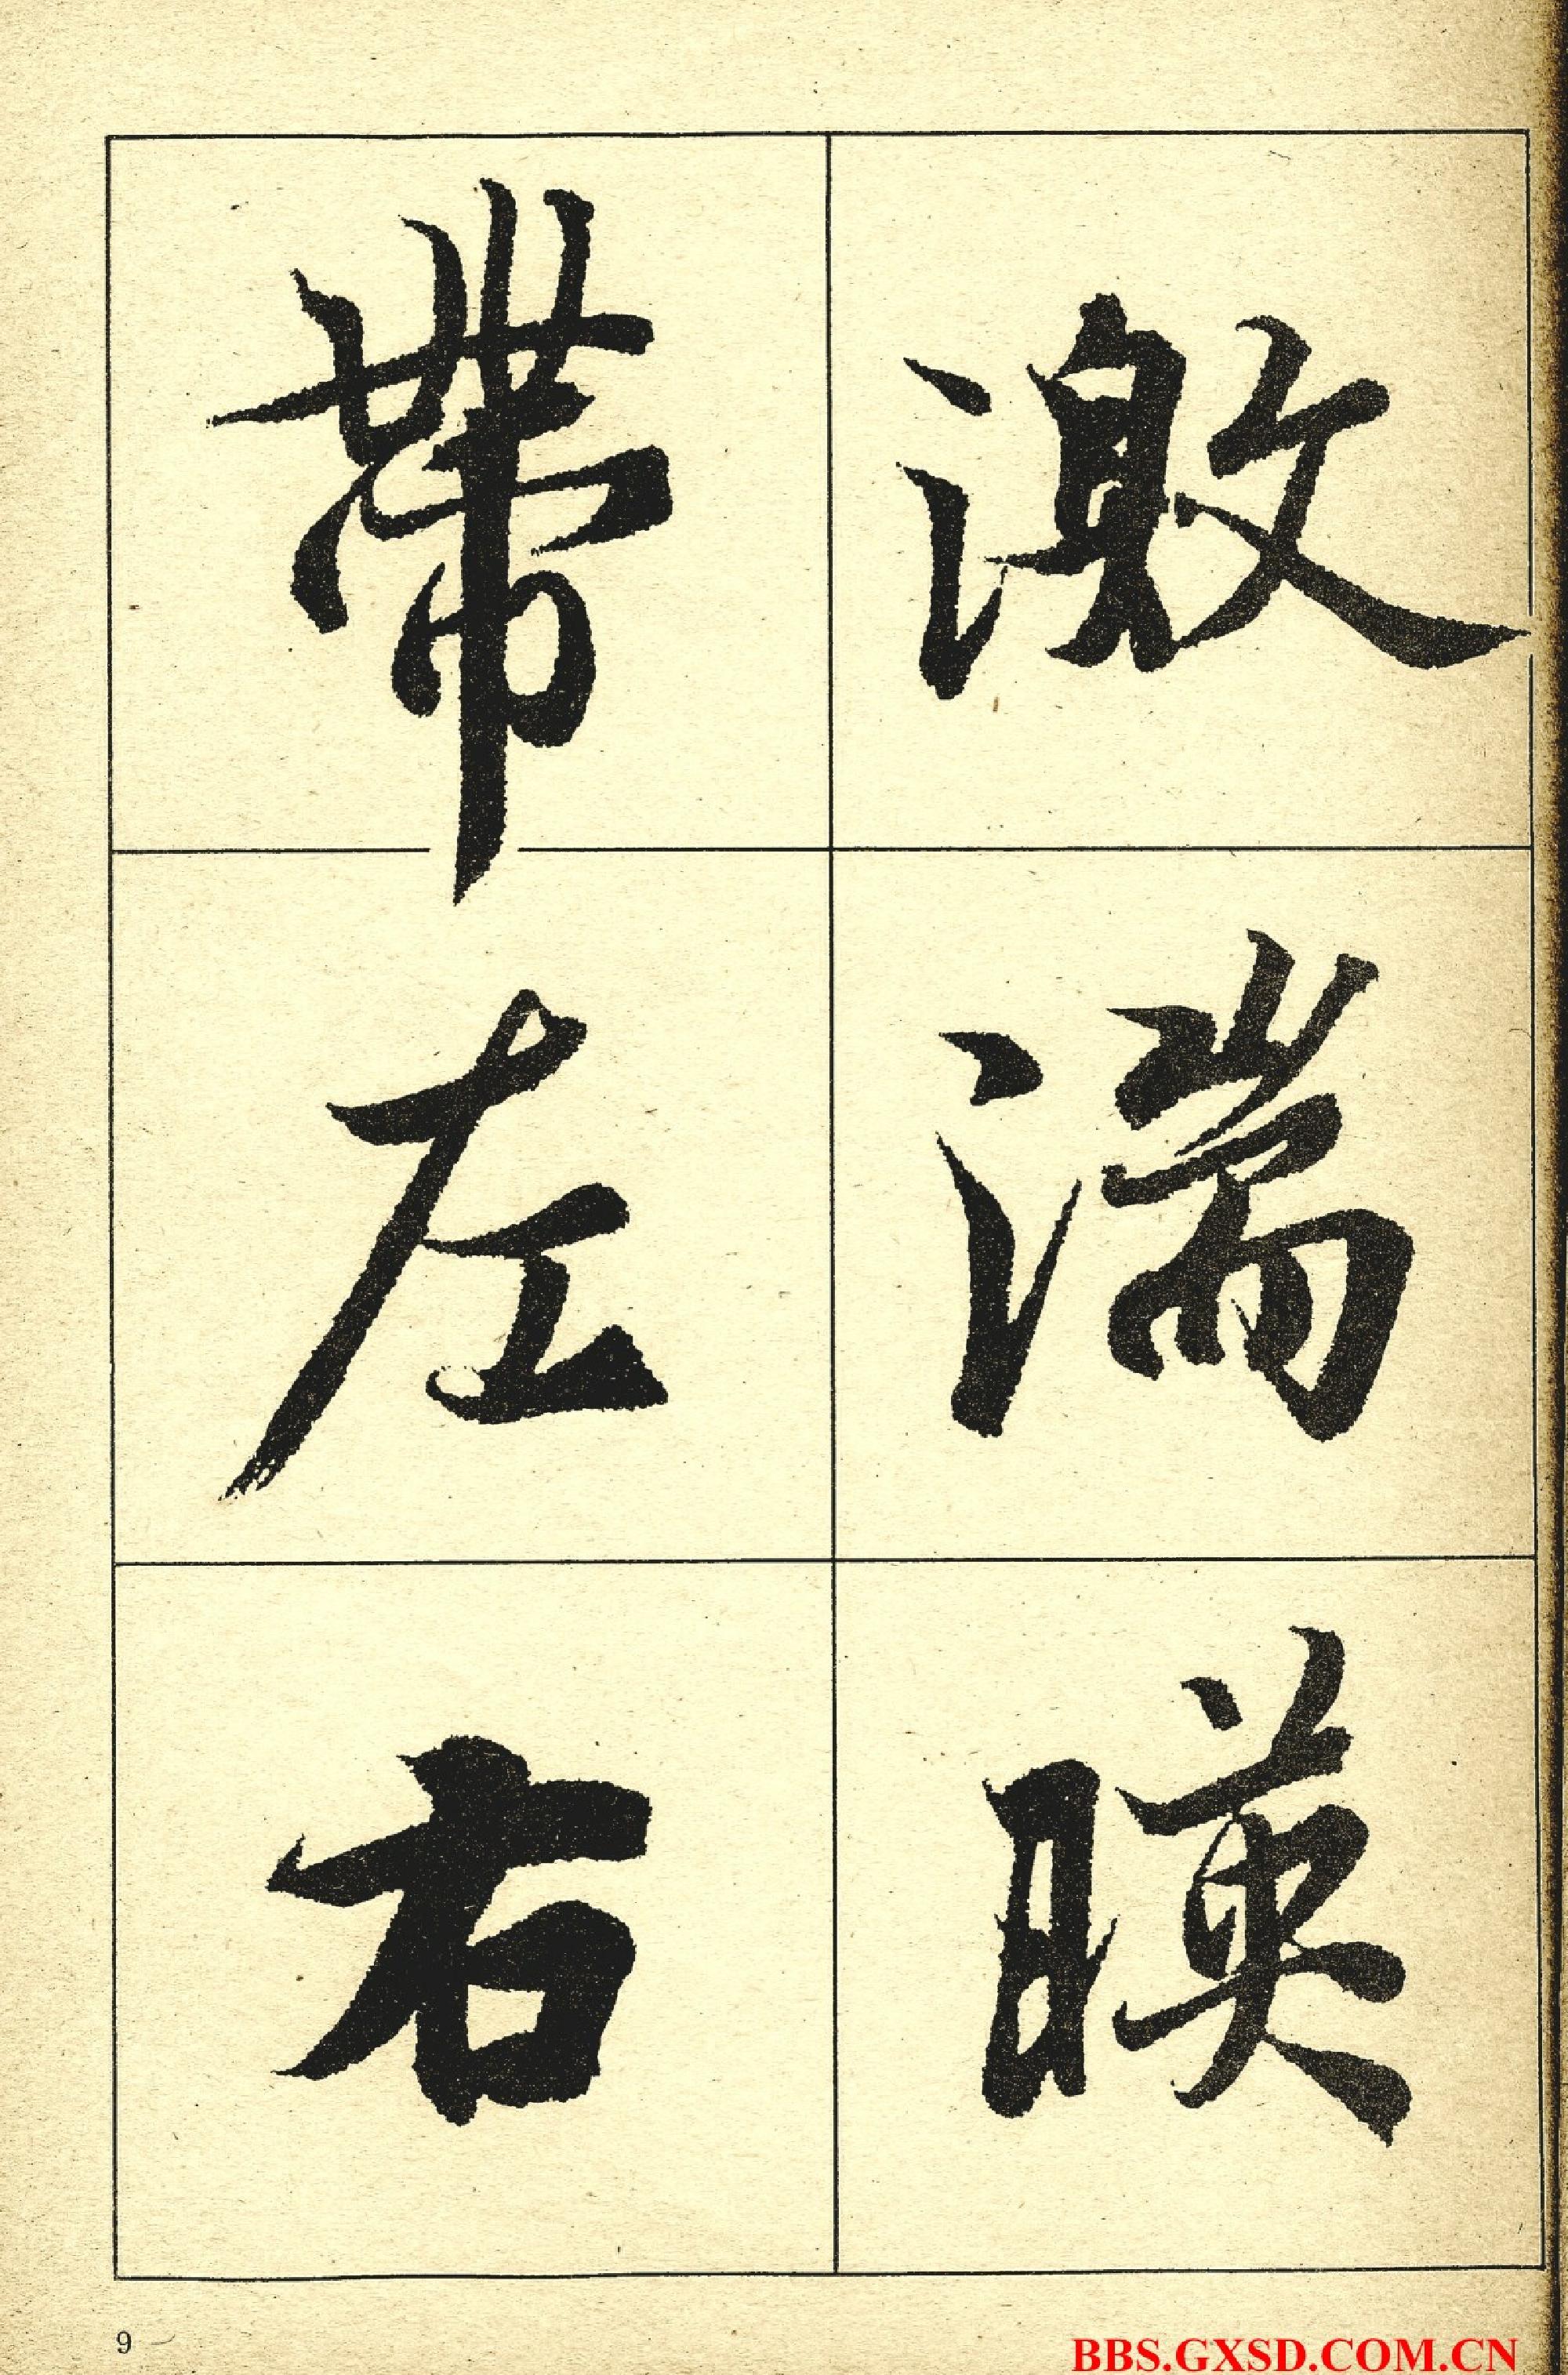 激湍暎
帶左右
9
BBS.GXSD.COM.CN